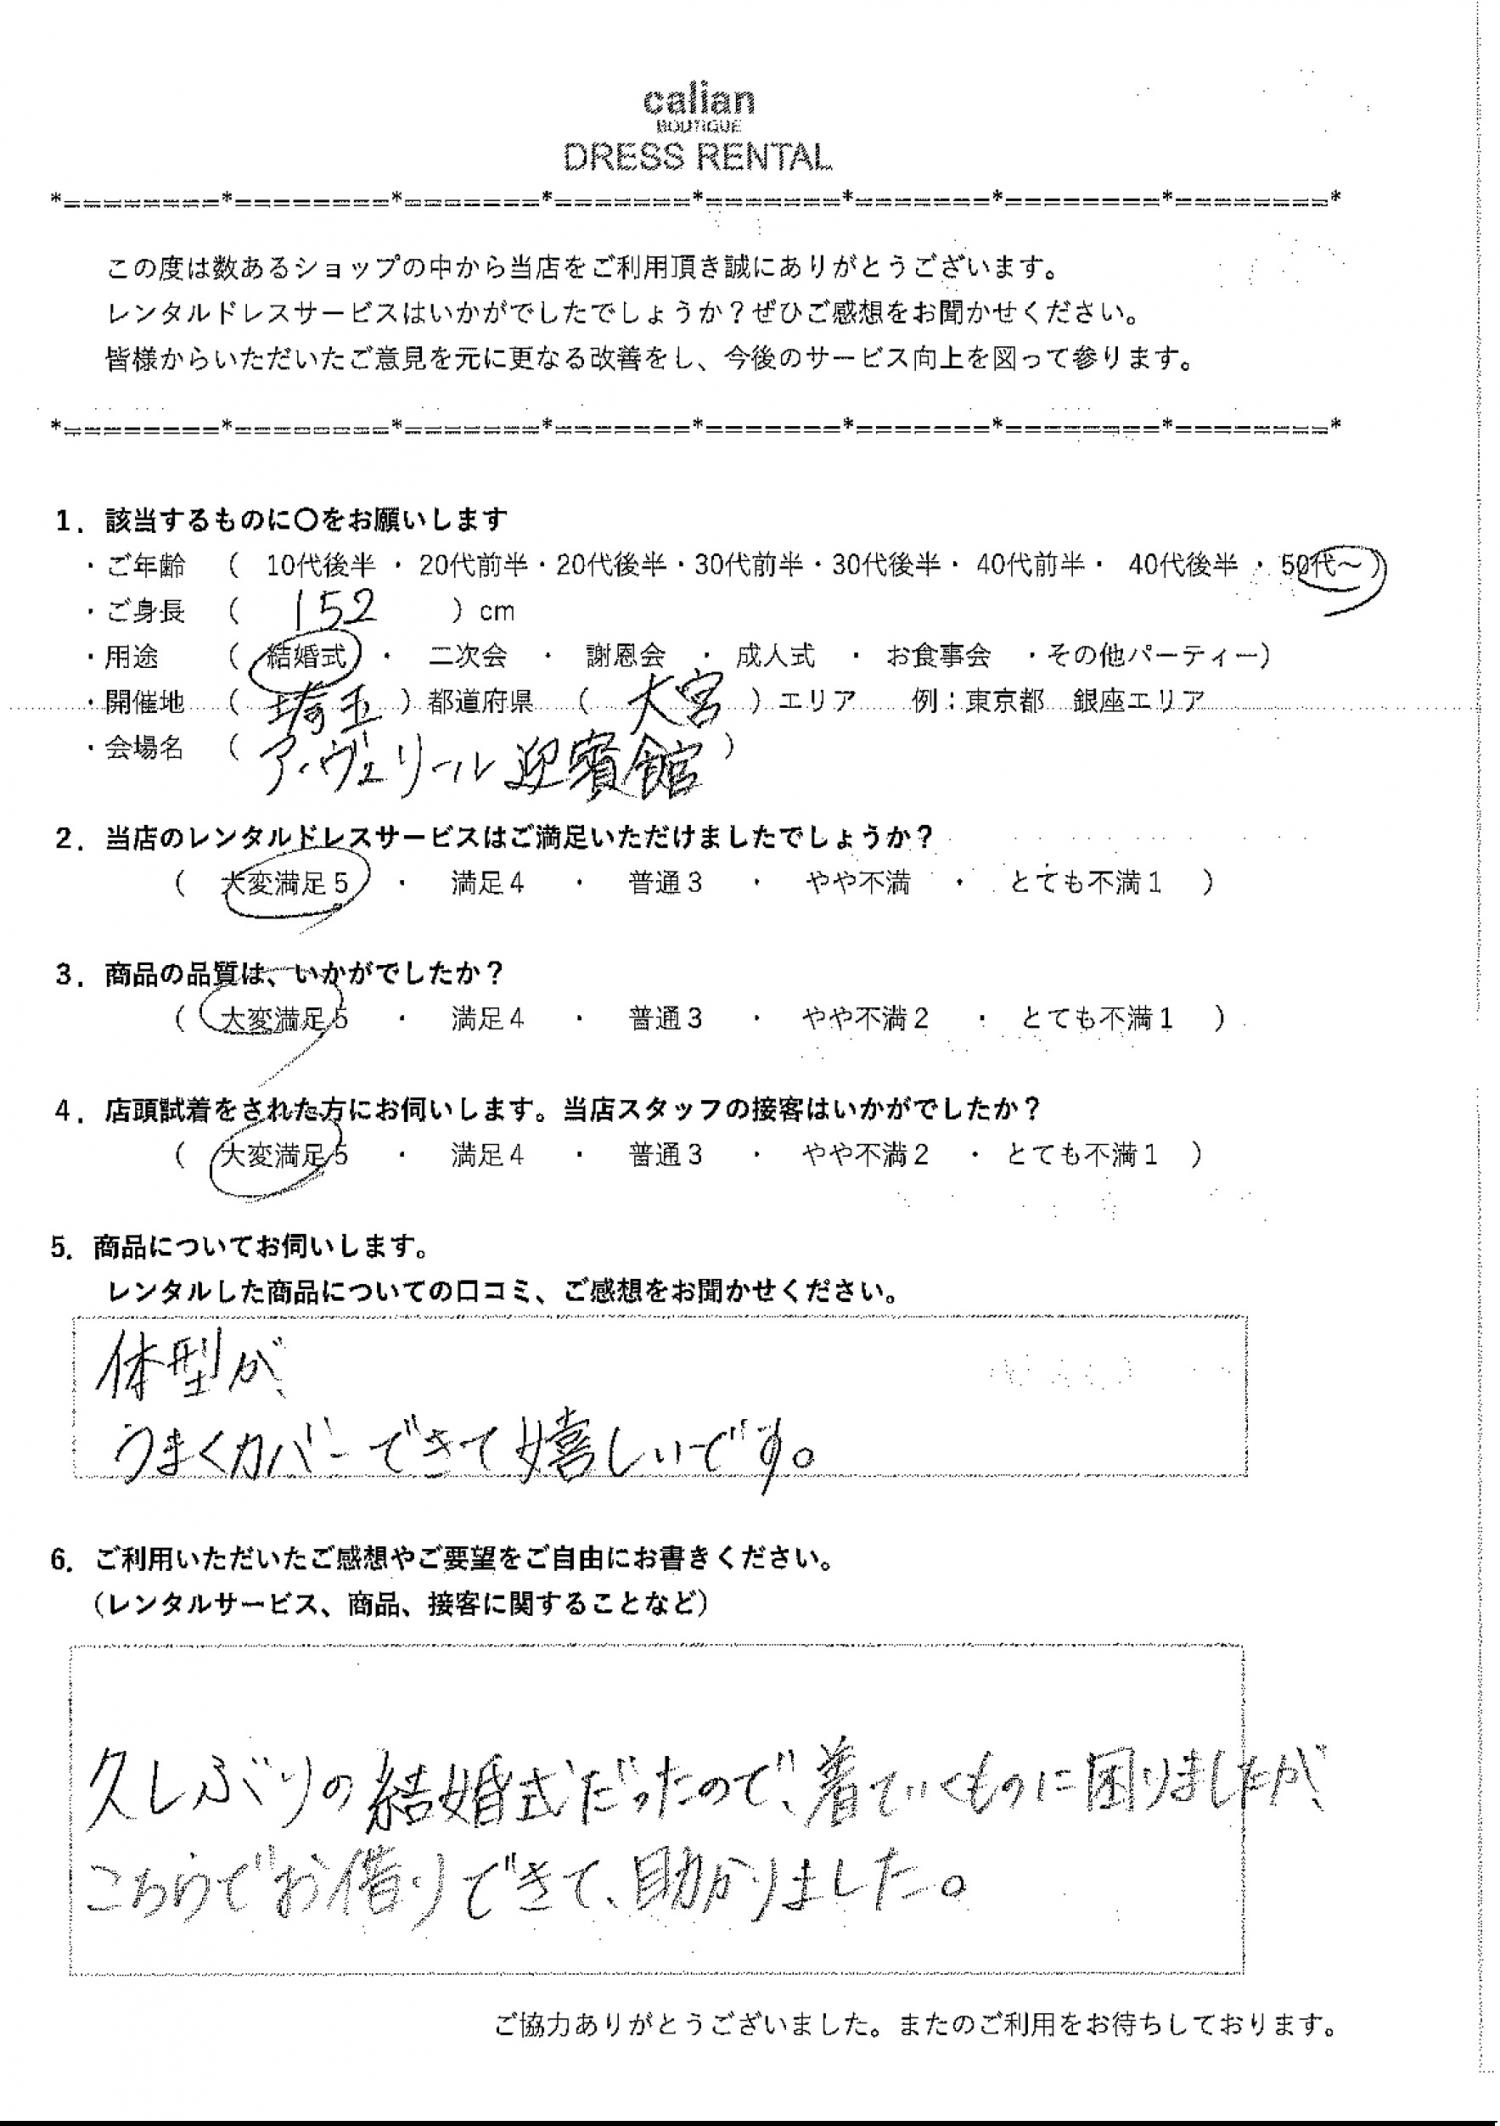 calian
BOUTIQUE
DRESS RENTAL
*========*========*=======*=======*=======*=======*========*========*
この度は数あるショップの中から当店をご利用頂き誠にありがとうございます。
レンタルドレスサービスはいかがでしたでしょうか？ぜひご感想をお聞かせください。
皆様からいただいたご意見を元に更なる改善をし、今後のサービス向上を図って参ります。
*========*========*=======*=======*=======*=======*========*========*
1．該当するものに〇をお願いします
・ご年齢　（　10代後半 ・ 20代前半・20代後半・30代前半・30代後半・ 40代前半・ 40代後半 ・ 50代～）
・ご身長　（　152　）cm
・用途　（ 結婚式 ・ 二次会 ・ 謝恩会 ・ 成人式 ・ お食事会 ・その他パーティー）
・開催地　（ 埼玉 ）都道府県　（ 大宮 ）エリア　例：東京都　銀座エリア
・会場名　（ アーヴェリール迎賓館 ）
2．当店のレンタルドレスサービスはご満足いただけましたでしょうか？
（ 大変満足５ ・ 満足４ ・ 普通３ ・ やや不満 ・ とても不満１ ）
3．商品の品質は、いかがでしたか？
（ 大変満足５ ・ 満足４ ・ 普通３ ・ やや不満２ ・ とても不満１ ）
4．店頭試着をされた方にお伺いします。当店スタッフの接客はいかがでしたか？
（ 大変満足５ ・ 満足４ ・ 普通３ ・ やや不満２ ・ とても不満１ ）
5．商品についてお伺いします。
レンタルした商品についての口コミ、ご感想をお聞かせください。
体型が、
うまくカバーできて嬉しいです。
6．ご利用いただいたご感想やご要望をご自由にお書きください。
（レンタルサービス、商品、接客に関することなど）
久しぶりの結婚式だったので、着ていくものに困りましたが、
こちらでお借りできて、助かりました。
ご協力ありがとうございました。またのご利用をお待ちしております。